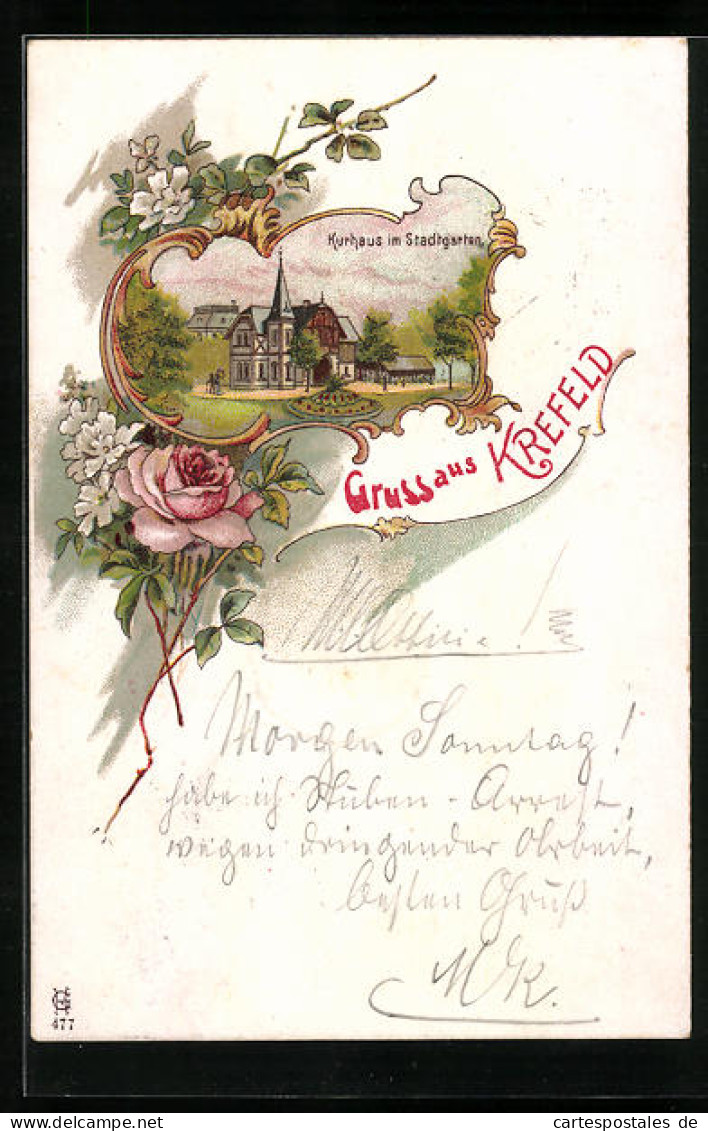 Kurhaus im Stadtgarten.
Gruss aus KREFELD
Morgen Sonntag!
habe ich Stuben-Arrest,
wegen dringender Arbeit,
besten Gruß
MK.
477
cartespostales de